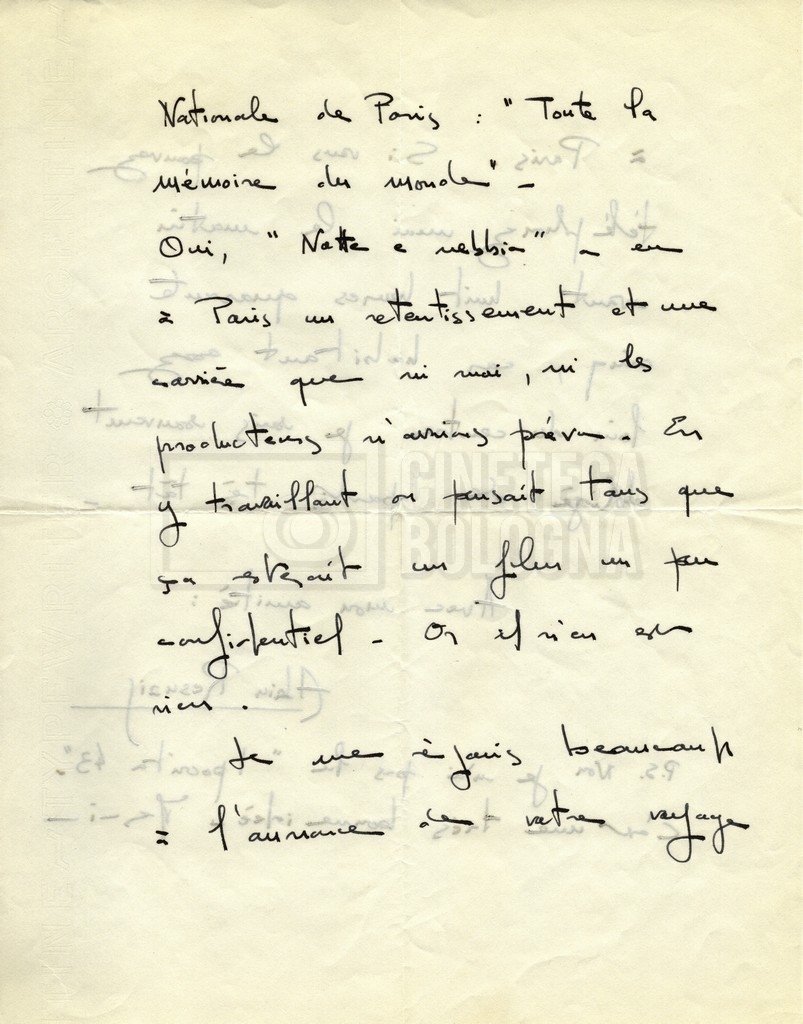 Nationale de Paris : "Toute la
mémoire du monde" -
Oui, "Notte e nebbia" a eu
à Paris un retentissement et une
carrière que ni moi, ni les
producteurs n'avions prévu. En
y travaillant on pensait tous que
ça resterait un film un peu
confidentiel - Or il n'en est
rien.
Je me réjouis beaucoup
à l'annonce de votre voyage
CINETECA
BOLOGNA